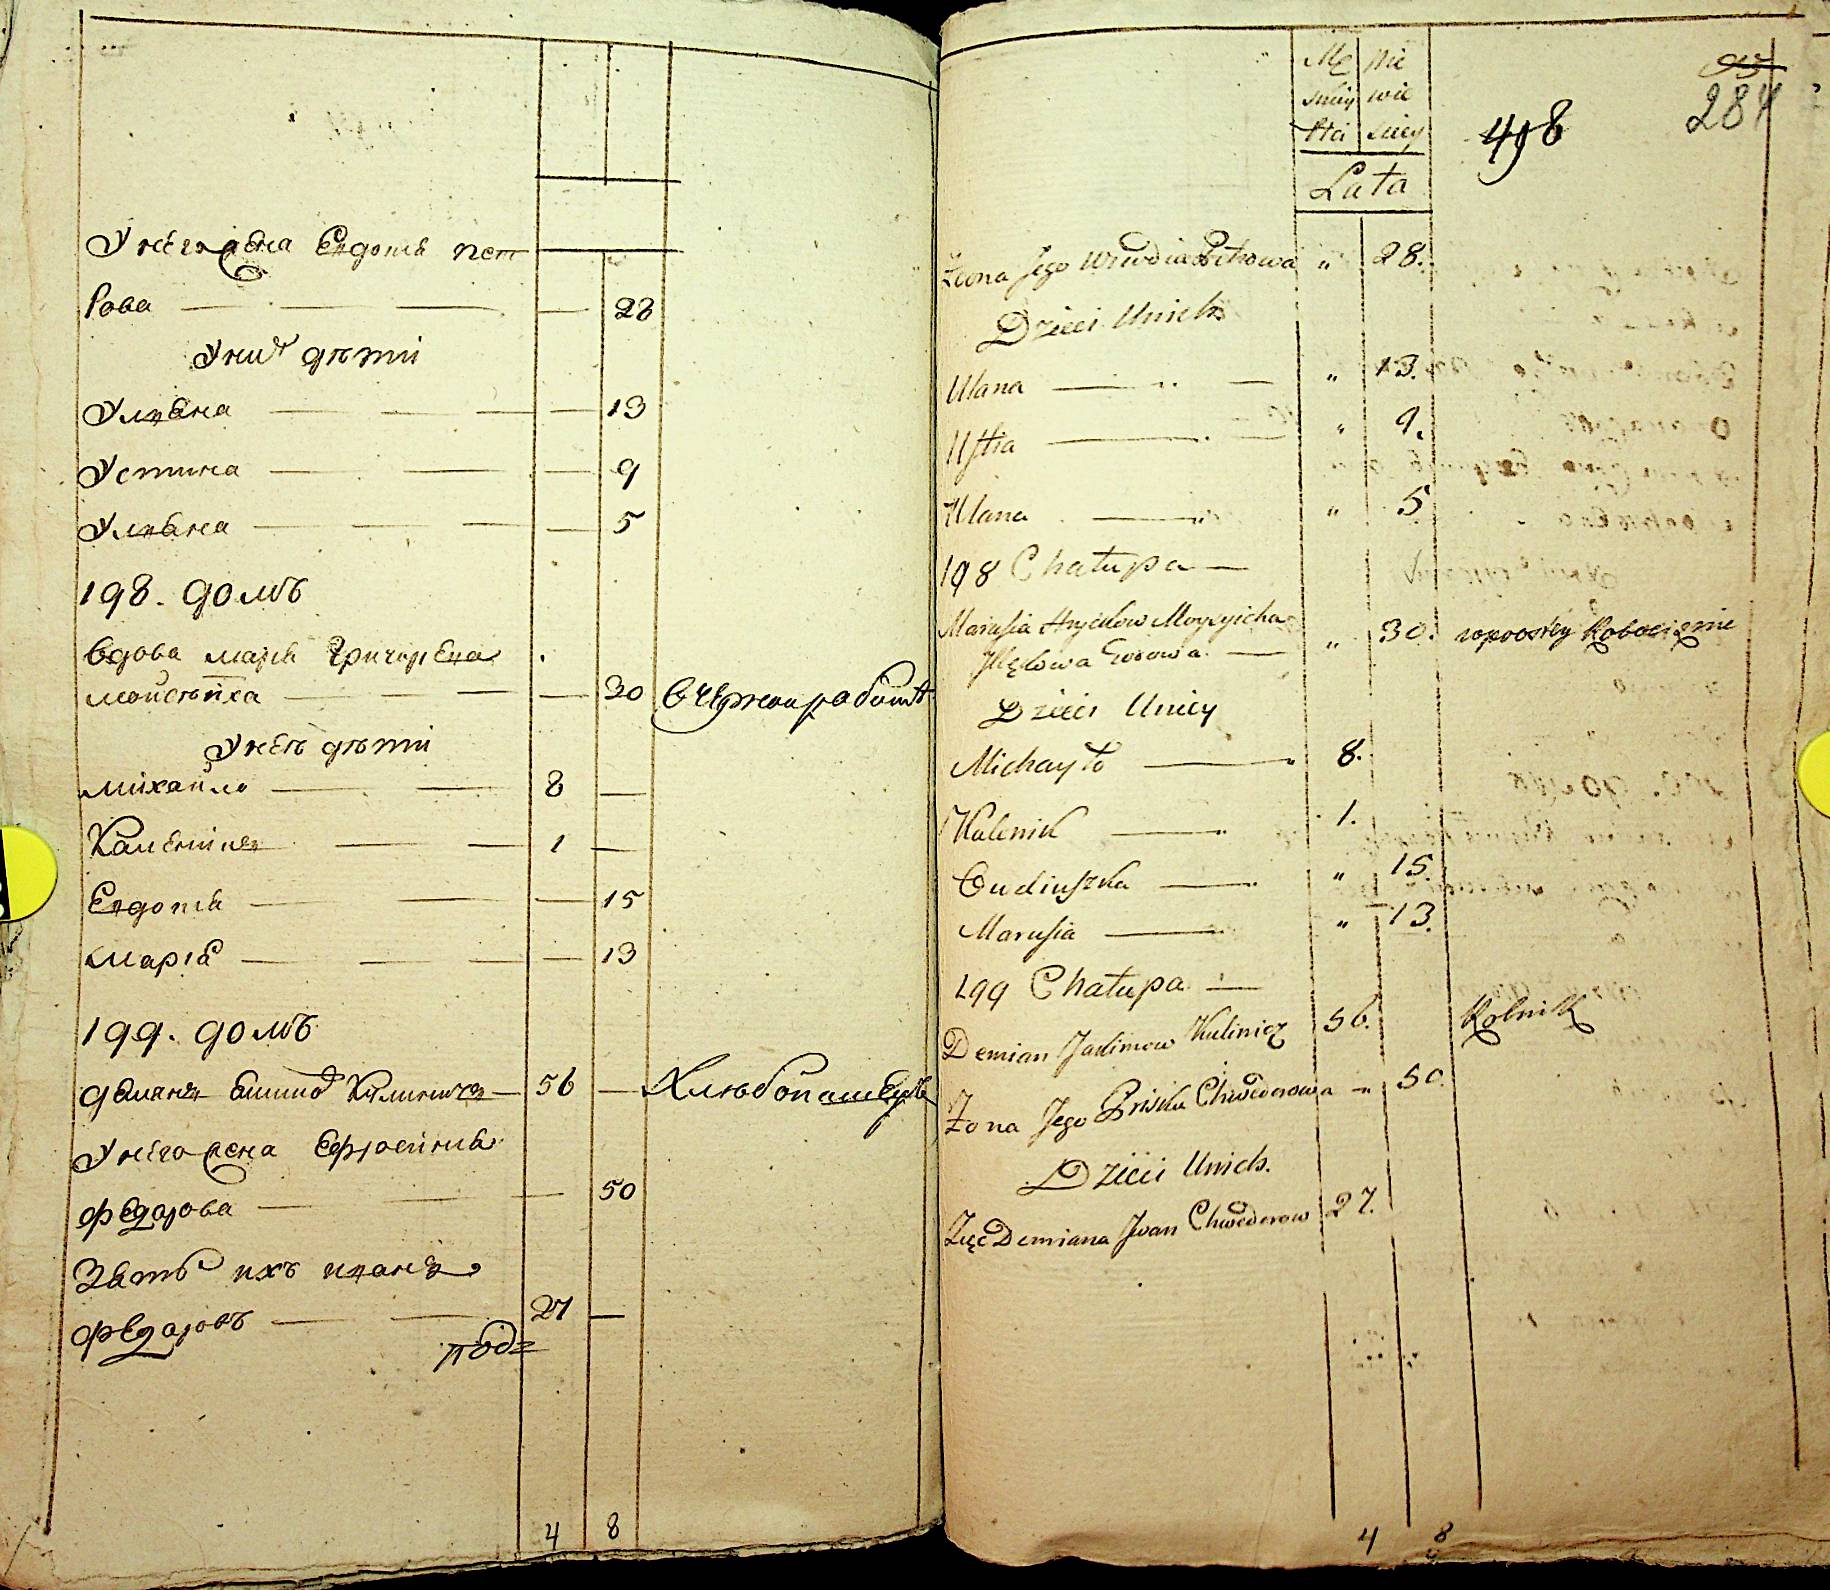 У него жена Евдотя Пет
рова — — — — 28
У них дѣти
Улвяна — — — — 13
Устина — — — — 9
Улвяна — — — — 5
198. домъ
вдова марья Григорьева
мойсѣиха — — — — 30 в чужой работѣ
У неѣ дѣти
михайло — — 8 —
Калениκъ — — 1 —
Евдотя — — — 15
мария — — — — 13
199. домъ
демянъ Калиничъ — 56 — Хлѣбопашецъ
У него жена Ефросиния
федорова — — — 50
Зять ихъ иванъ
федоровъ — — 27 —
4 8
Mę Nie
sczy wie
zni sczy
Lata
498
284
Żona Jego Owdia Petrowa " 28.
Dzieci Unich
Ulana — " — " 13.
Ustia — — " 9.
Ulana — " 5
198 Chałupa —
Marusia Hryckow Moysyicha
Wdowa — " 30. w prostey Robociznie
Dzieci Uniey
Michayło — 8.
Kalenik — 1.
Owdiuszka — " 15.
Marusia — " 13.
199 Chałupa —
Demian Jackimow Kulinicz 56. Rolnik
Żona Jego Priska Chwedorowa " 50.
Dzieci Unich.
Zięć Demiana Jwan Chwedorow 27.
4 8